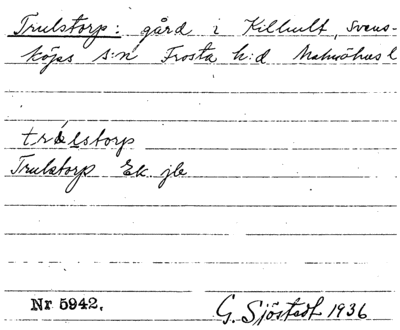 Trulstorp: gård i Killhult, Svens-
köps s:n Frosta h:d Malmöhus l
trulstorp
Trulstorp Ek. jb
Nr 5942.
G. Sjöstedt 1936